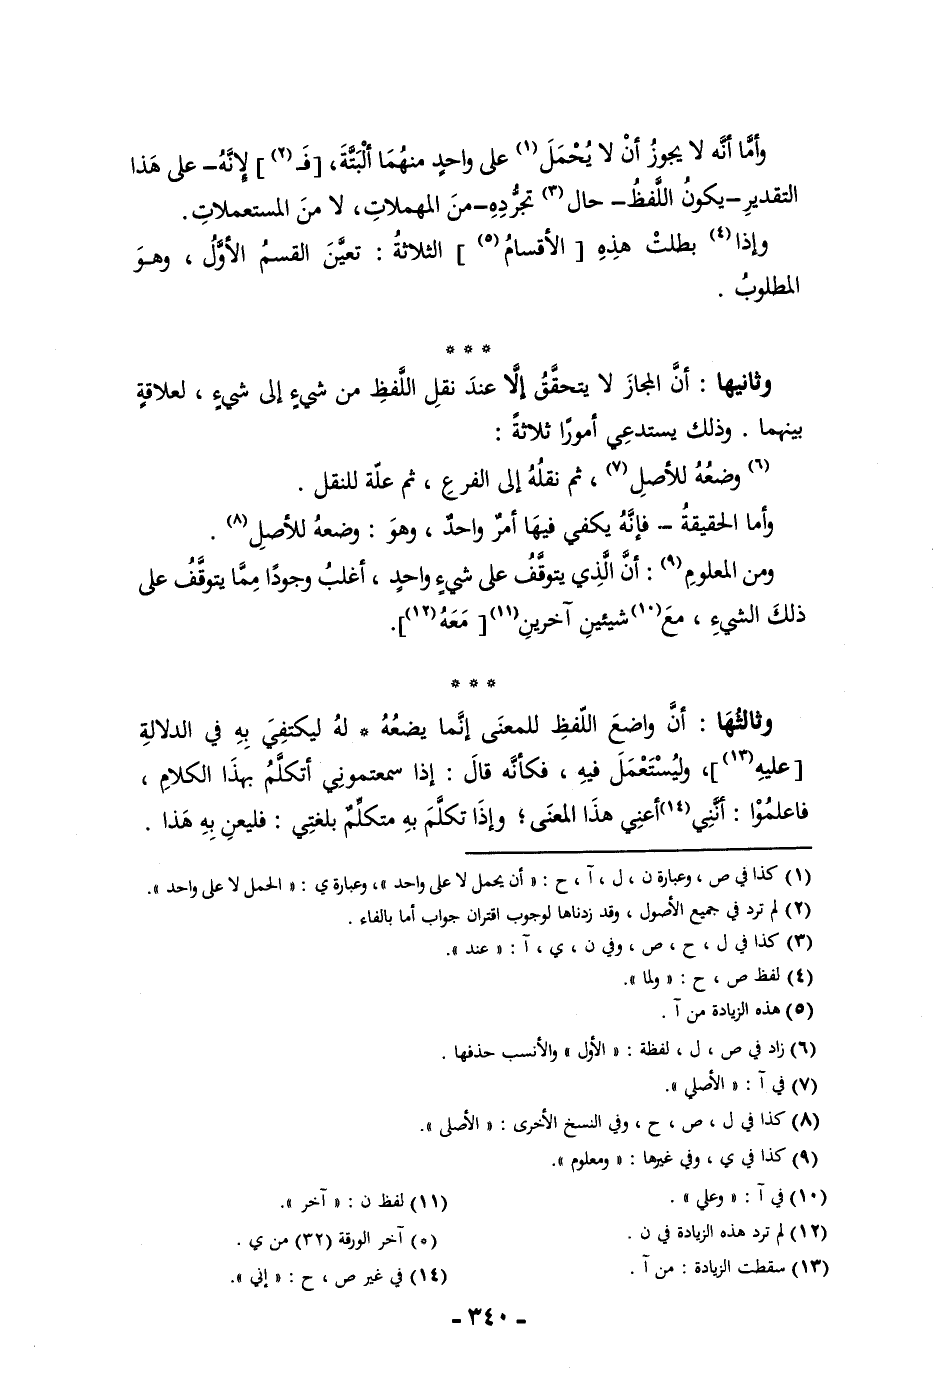 وأمَّا أنَّه لا يجوزُ أنْ لا يُحْمَلَ (١) على واحدٍ منهُمَا ألْبَتَّةَ، [فَـ (٢) ] لِإنَّهُ– على هَذا
التقديرِ–يكونُ اللَّفظُ– حال (٣) تجرُّدِهِ–منَ المهملاتِ، لا منَ المستعملاتِ.
وإذا (٤) بطلتْ هذِهِ [ الأقسامُ (٥) ] الثلاثةُ : تعيَّنَ القسمُ الأوَّلُ ، وهـوَ
المطلوبُ .
* * *
وثانيها : أنَّ المجازَ لا يتحقَّقُ إلَّا عندَ نقلِ اللَّفظِ من شيءٍ إلى شيءٍ ، لعلاقةٍ
بينهما . وذلك يستدعِي أمورًا ثلاثةً :
(٦) وضعُهُ للأصلِ (٧) ، ثم نقلُهُ إلى الفرعِ ، ثم علّة للنقل .
وأما الحقيقةُ – فإنَّهُ يكفي فيهَا أمرٌ واحدٌ ، وهوَ : وضعهُ للأصلِ (٨) .
ومن المعلومِ (٩) : أنَّ الَّذِي يتوقَّفُ على شيءٍ واحدٍ ، أغلبُ وجودًا مِمَّا يتوقَّفُ على
ذلكَ الشيءِ ، معَ (١٠) شيئينِ آخرينِ (١١) [ مَعَهُ (١٢) ].
* * *
وثالثُهَا : أنَّ واضعَ اللّفظِ للمعنَى إنَّما يضعُهُ * لهُ ليكتفِيَ بِهِ في الدلالةِ
[عليهِ (١٣) ]، وليُسْتَعْمَلَ فيهِ ، فكأنَّه قالَ : إذا سمعتمونِي أتكلَّمُ بهذَا الكلامِ ،
فاعلمُوْا : أنَّنِي (١٤) أعنِي هذَا المعنَى ؛ وإذَا تكلَّمَ بهِ متكلِّمٌ بلغتِي : فليعنِ بِهِ هَذا .
(١) كذا في ص ، وعبارة ن ، ل ، آ ، ح : « أن يحمل لا على واحد »، وعبارة ي : « الحمل لا على واحد ».
(٢) لم ترد في جميع الأصول ، وقد زدناها لوجوب اقتران جواب أما بالفاء .
(٣) كذا في ل ، ح ، ص ، وفي ن ، ي ، آ : « عند ».
(٤) لفظ ص ، ح : « ولما ».
(٥) هذه الزيادة من آ .
(٦) زاد في ص ، ل ، لفظة : « الأول » والأنسب حذفها .
(٧) في آ : « الأصلي ».
(٨) كذا في ل ، ص ، ح ، وفي النسخ الأخرى : « الأصلى ».
(٩) كذا في ي ، وفي غيرها : « ومعلوم ».
(١٠) في آ : « وعلي » .
(١١) لفظ ن : « آخر ».
(١٢) لم ترد هذه الزيادة في ن .
(٥) آخر الورقة (٣٢) من ي .
(١٣) سقطت الزيادة : من آ .
(١٤) في غير ص ، ح : « إني ».
- ٣٤٠ -